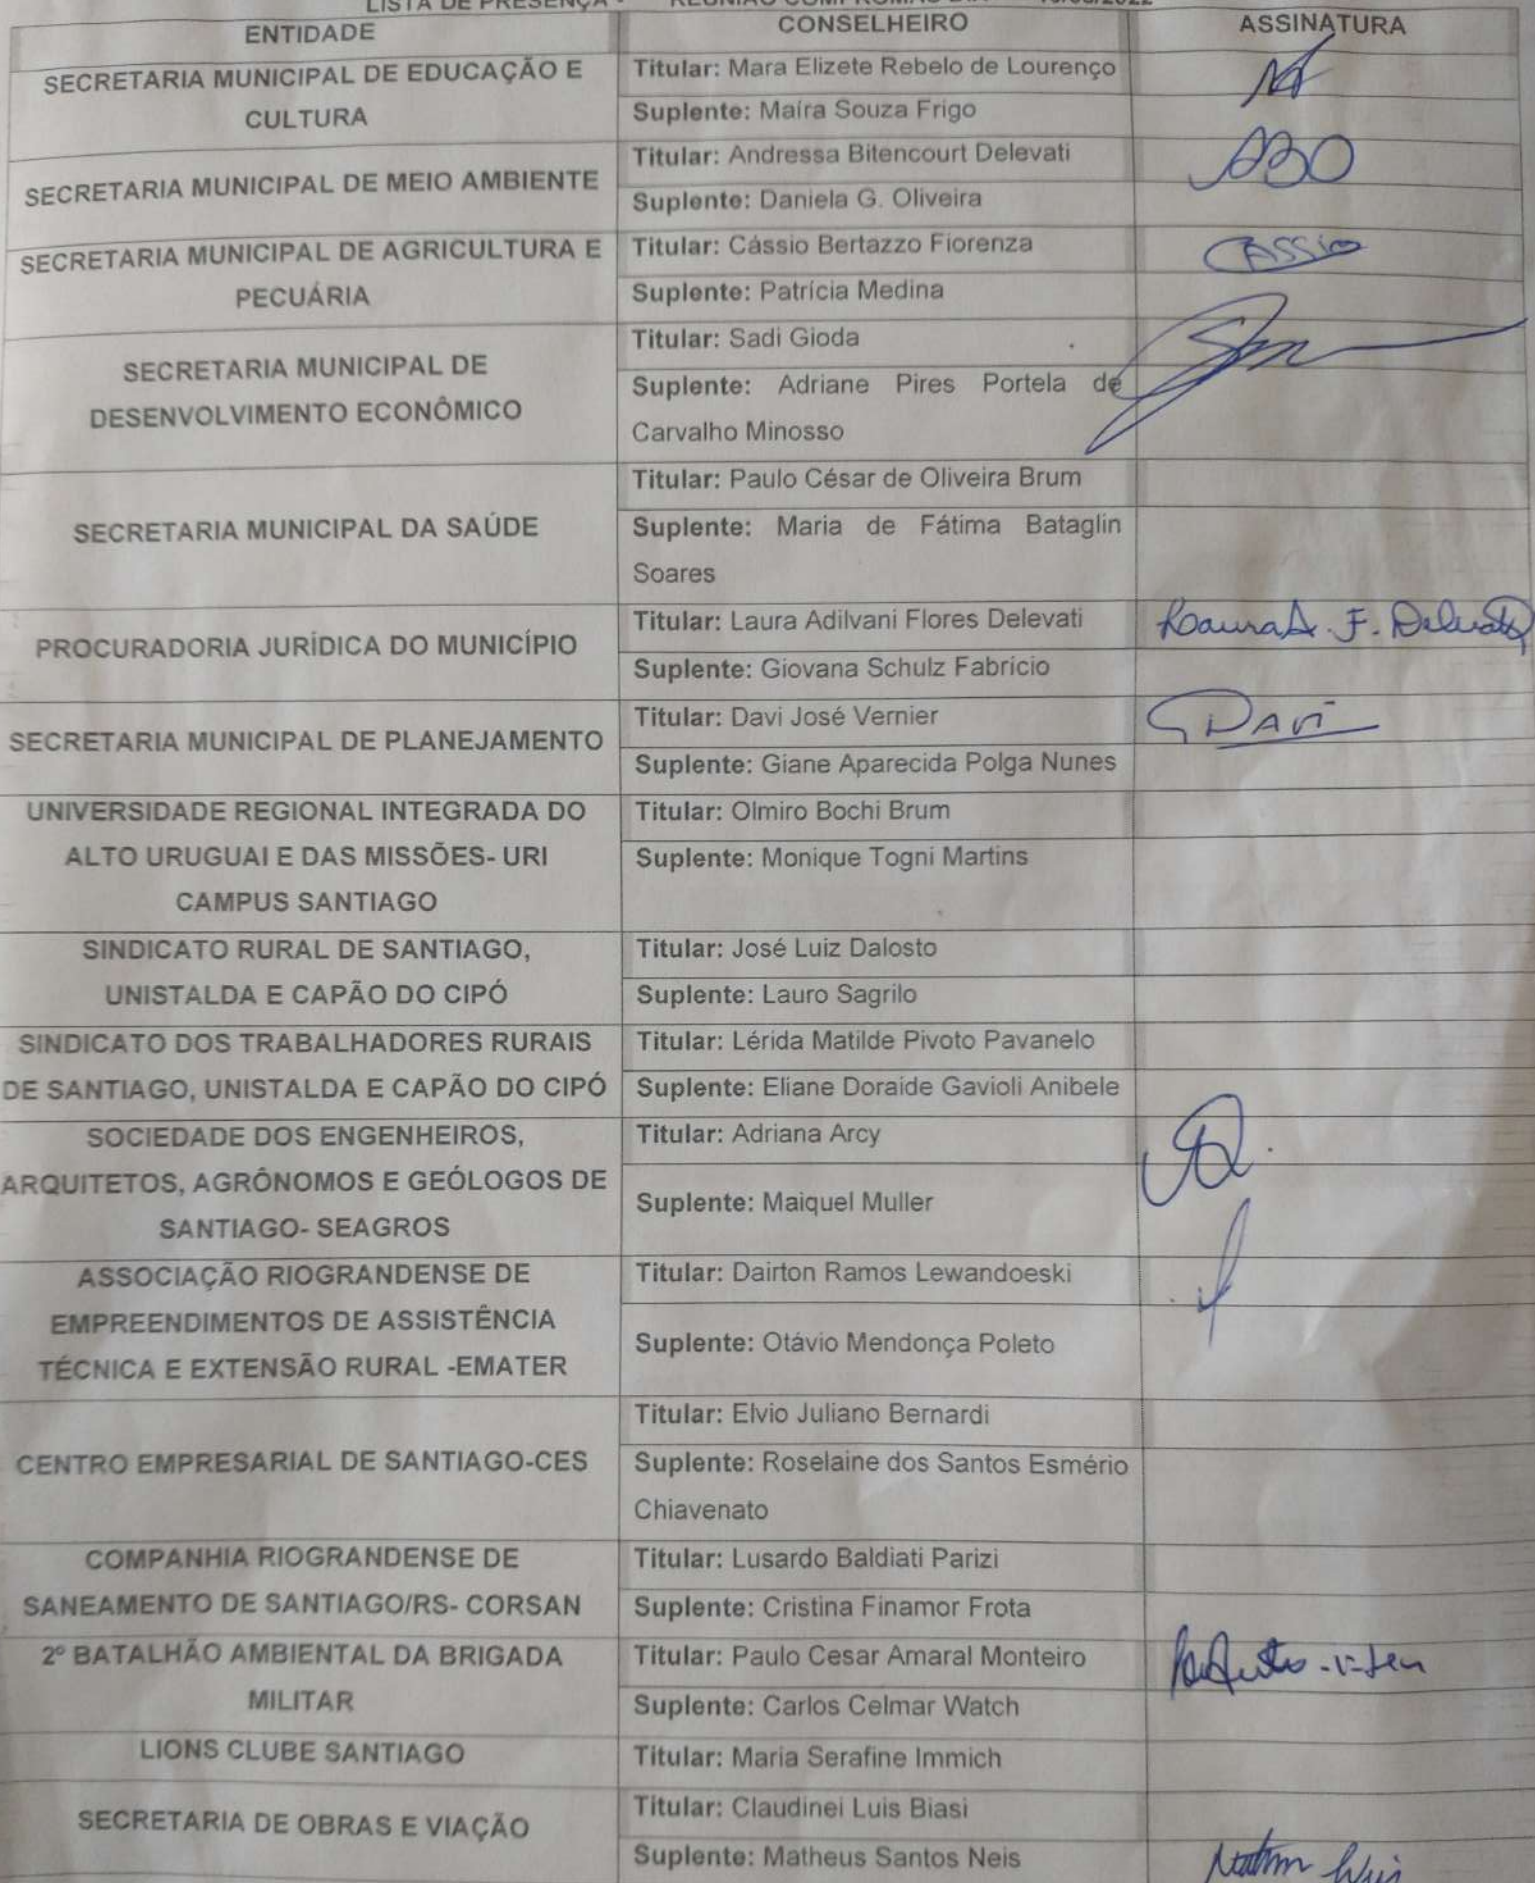 LISTA DE PRESENÇA -
ENTIDADE CONSELHEIRO ASSINATURA
SECRETARIA MUNICIPAL DE EDUCAÇÃO E
CULTURA
Titular: Mara Elizete Rebelo de Lourenço
Suplente: Maíra Souza Frigo
SECRETARIA MUNICIPAL DE MEIO AMBIENTE
Titular: Andressa Bitencourt Delevati
ABO
Suplente: Daniela G. Oliveira
SECRETARIA MUNICIPAL DE AGRICULTURA E
PECUÁRIA
Titular: Cássio Bertazzo Fiorenza
CASSIO
Suplente: Patrícia Medina
SECRETARIA MUNICIPAL DE
DESENVOLVIMENTO ECONÔMICO
Titular: Sadi Gioda
Suplente: Adriane Pires Portela de
Carvalho Minosso
SECRETARIA MUNICIPAL DA SAÚDE
Titular: Paulo César de Oliveira Brum
Suplente: Maria de Fátima Bataglin
Soares
PROCURADORIA JURÍDICA DO MUNICÍPIO
Titular: Laura Adilvani Flores Delevati
Laura A. F. Delevati
Suplente: Giovana Schulz Fabrício
SECRETARIA MUNICIPAL DE PLANEJAMENTO
Titular: Davi José Vernier
DAVi
Suplente: Giane Aparecida Polga Nunes
UNIVERSIDADE REGIONAL INTEGRADA DO
ALTO URUGUAI E DAS MISSÕES- URI
CAMPUS SANTIAGO
Titular: Olmiro Bochi Brum
Suplente: Monique Togni Martins
SINDICATO RURAL DE SANTIAGO,
UNISTALDA E CAPÃO DO CIPÓ
Titular: José Luiz Dalosto
Suplente: Lauro Sagrilo
SINDICATO DOS TRABALHADORES RURAIS
DE SANTIAGO, UNISTALDA E CAPÃO DO CIPÓ
Titular: Lérida Matilde Pivoto Pavanelo
Suplente: Eliane Doraide Gavioli Anibele
SOCIEDADE DOS ENGENHEIROS,
ARQUITETOS, AGRÔNOMOS E GEÓLOGOS DE
SANTIAGO- SEAGROS
Titular: Adriana Arcy
Suplente: Maiquel Muller
ASSOCIAÇÃO RIOGRANDENSE DE
EMPREENDIMENTOS DE ASSISTÊNCIA
TÉCNICA E EXTENSÃO RURAL -EMATER
Titular: Dairton Ramos Lewandoeski
Suplente: Otávio Mendonça Poleto
CENTRO EMPRESARIAL DE SANTIAGO-CES
Titular: Elvio Juliano Bernardi
Suplente: Roselaine dos Santos Esmério
Chiavenato
COMPANHIA RIOGRANDENSE DE
SANEAMENTO DE SANTIAGO/RS- CORSAN
Titular: Lusardo Baldiati Parizi
Suplente: Cristina Finamor Frota
2º BATALHÃO AMBIENTAL DA BRIGADA
MILITAR
Titular: Paulo Cesar Amaral Monteiro
Suplente: Carlos Celmar Watch
LIONS CLUBE SANTIAGO
Titular: Maria Serafine Immich
SECRETARIA DE OBRAS E VIAÇÃO
Titular: Claudinei Luis Biasi
Suplente: Matheus Santos Neis